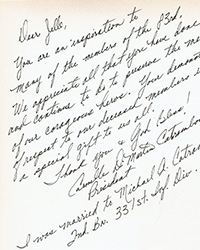 Dear Jelle,
You are an inspiration to
many of the members of the 83rd.
We appreciate all that you have done
and continue to do to preserve the me
of our courageous heros. Your demons
of respect to our deceased members is
a special gift to us all!
Thank you & God Bless!
Camille D. Martin Catrombon
President
I was married to Michael A. Catrom
2nd. Bn. 331st. Inf Div.